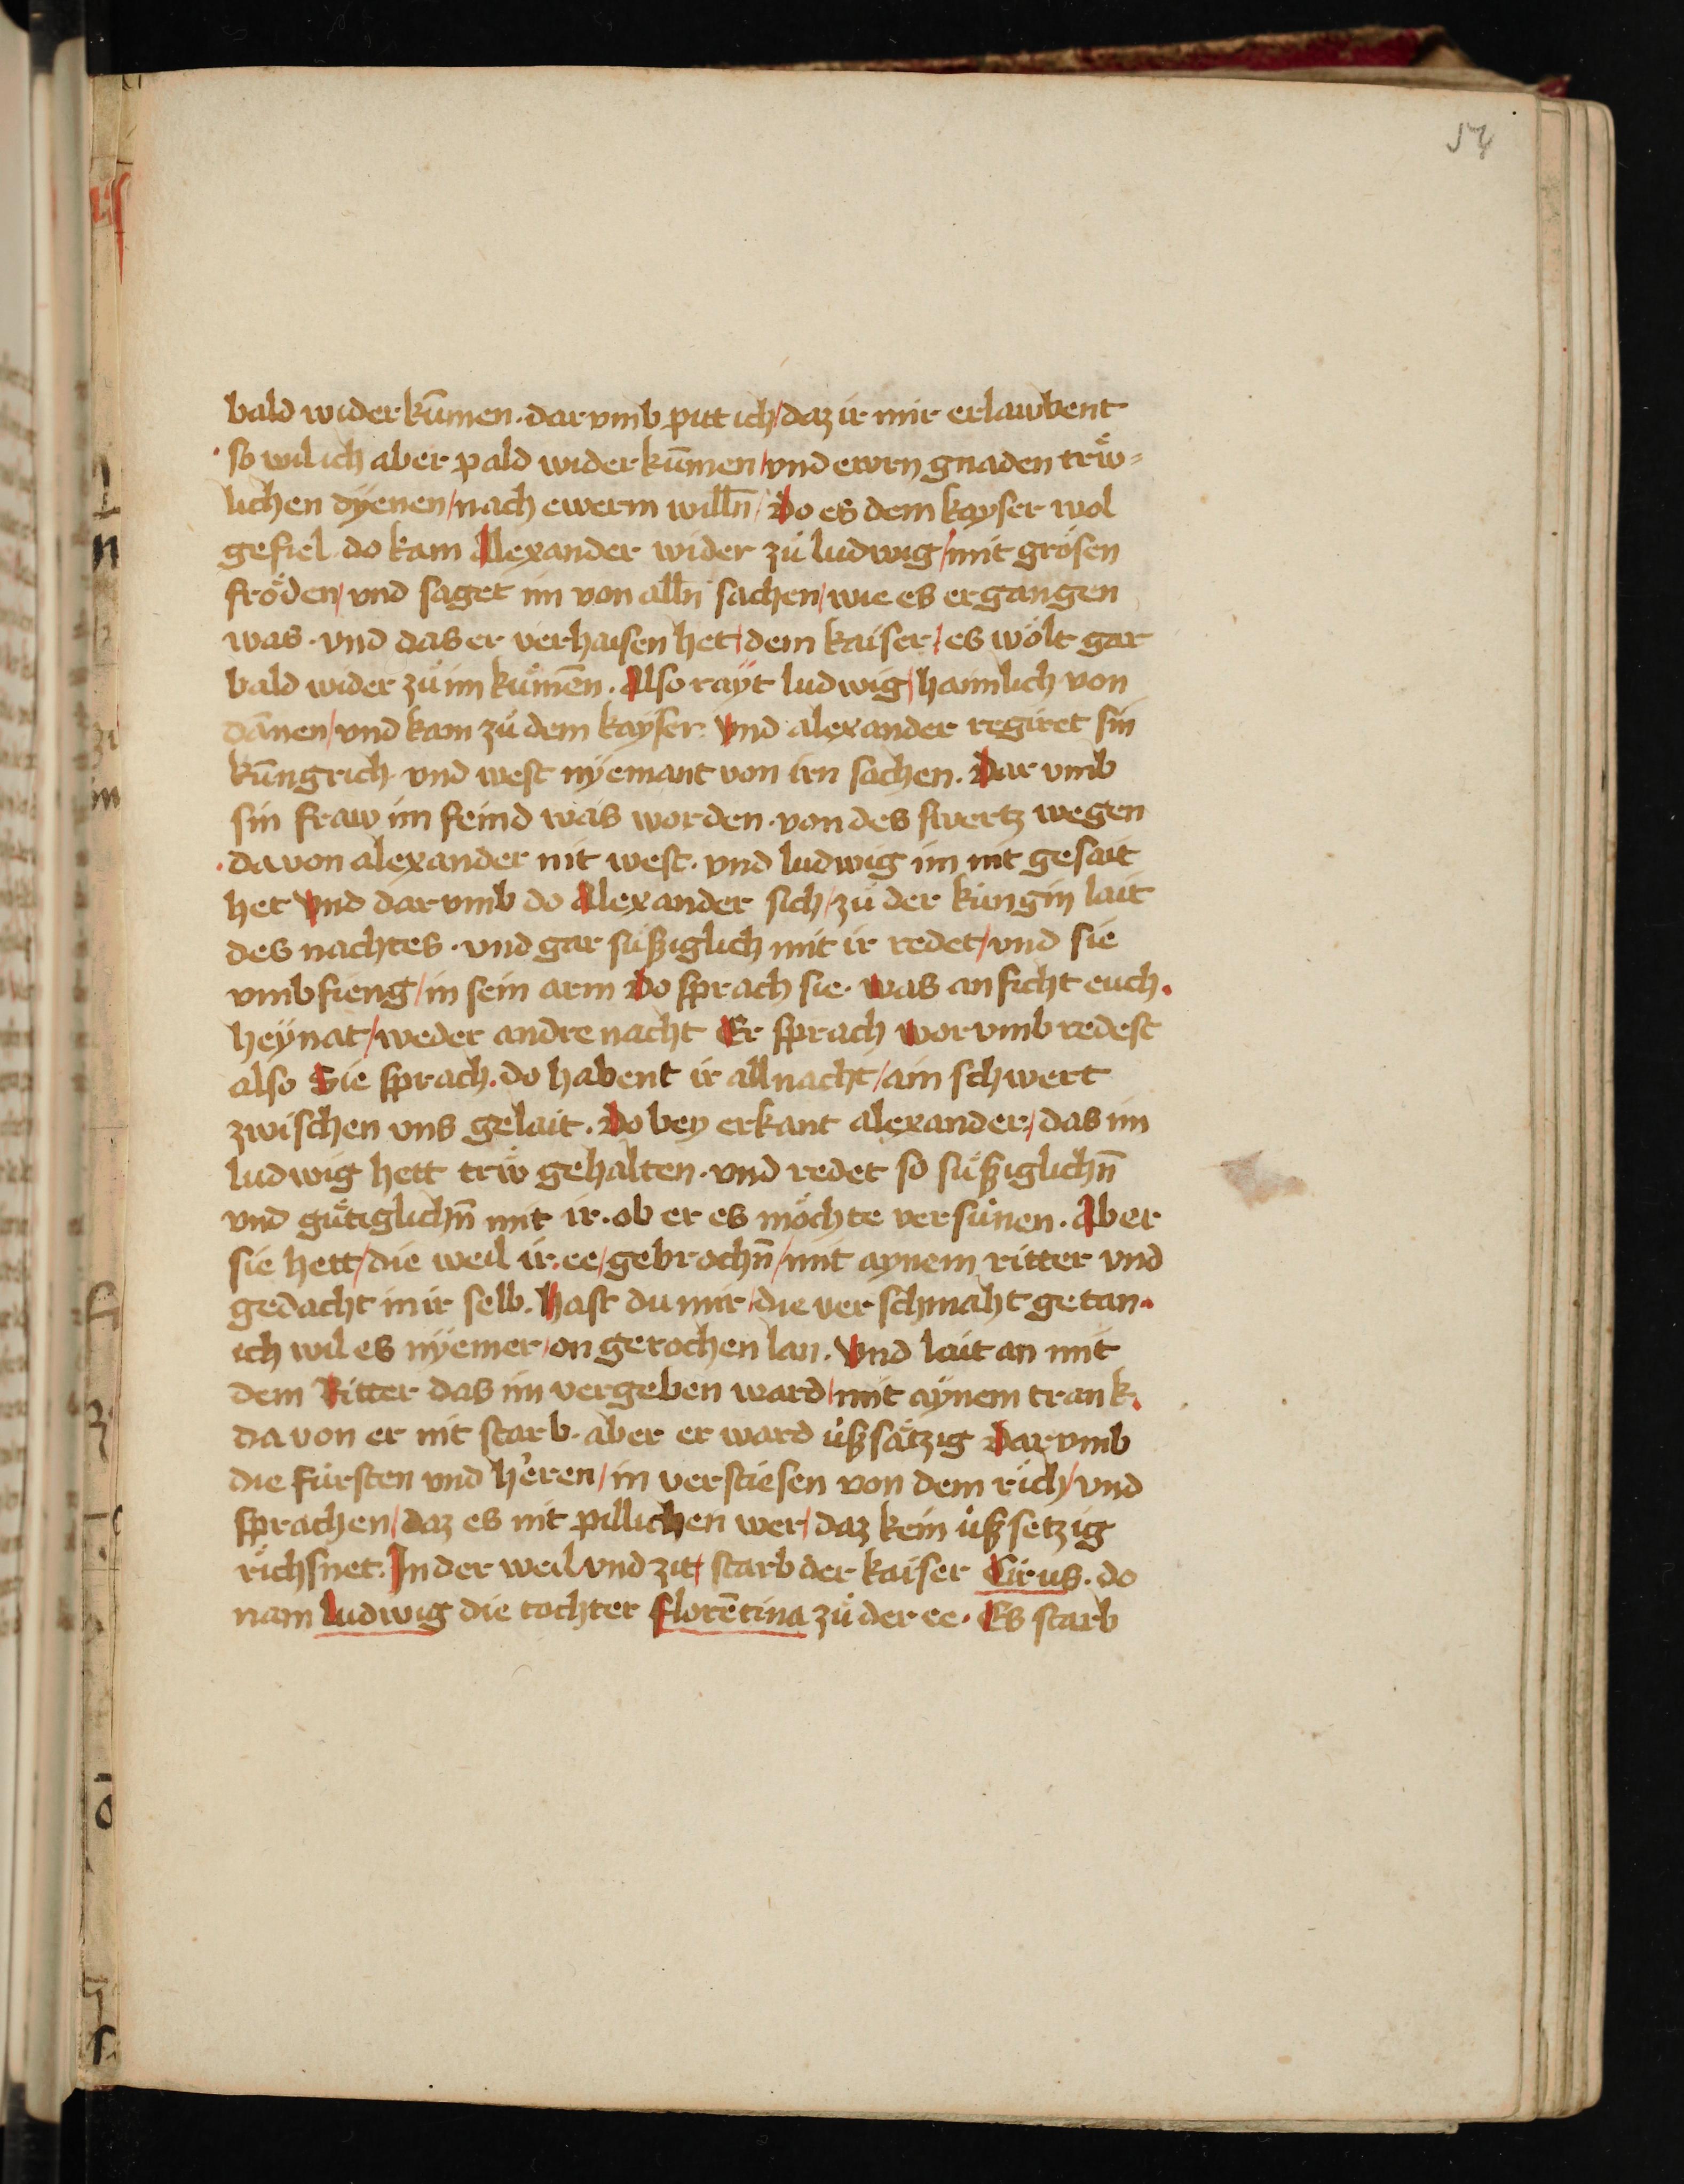 54
bald wider kūmen · dar vmb pitt ich / daz ir mir erlawbent
· so wil ich aber pald wider kūmen / vnd ewrn gnaden trẅ⸗
lichen dÿenen / nach ewerm willn̄ / Do es dem kayser wol
gefiel do kam Alexander wider zů ludwig / mit grösen
fröden / vnd saget im von alln̄ sachen / wie es ergangen
was · vnd das er verhaisen het / dem kaiser / es wölt gar
bald wider zů im kūmēn . Also raÿt ludwig / haimlich von
dānen / vnd kam zů dem kayser Vnd alexander regiret sin
kūngrich · vnd west nÿemant von irn sachen . Dar vmb
sin fraw im feind was worden · von des swertz wegen
· da von alexander nit west · vnd ludwig im nit gesait
het Vnd dar vmb do Alexander sich / zů der küngin lait
des nachtes · vnd gar süßiglich mit ir redet / vnd sie
vmbfieng / in sein arm Do sprach sie · Was anficht euch .
heÿnat / weder andre nacht Er sprach Wor vmb redest
also Sie sprach . do habent ir all nacht / ain schwert
zwischen vns gelait . Do bey erkant alexander / das im
ludwig hett trẅ gehalten · vnd redet so süßiglichn̄
vnd gütiglichn̄ mit ir · ob er es möchte versünen . Aber
sie hett / die weil ir . ee / gebrochn̄ / mit aynem ritter vnd
gedacht in ir selb . Hast du mir / die verschmaht getan .
ich wil es nÿemer / on gerochen lan . Vnd lait an mit
dem Ritter das im vergeben ward / mit aÿnem trank .
da von er nit starb · aber er ward üßsätzig Dar vmb
die fürsten vnd h'eren / in verstiesen von dem rich / vnd
sprachen / daz es nit pillichen wer / daz kein üßsetzig
richsnet . In der weil vnd zit / starb der kaiser Cirus . do
nam ludwig die tochter florētina zů der ee . Es starb